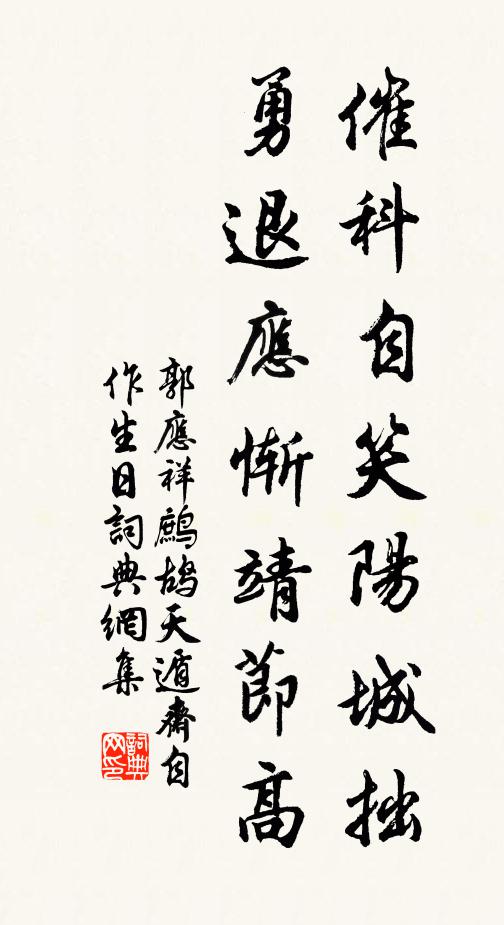 催科自笑陽城拙
勇退應慚靖節高
郭應祥鷓鴣天遁齋自
作生日詞典網集
詞典
网印